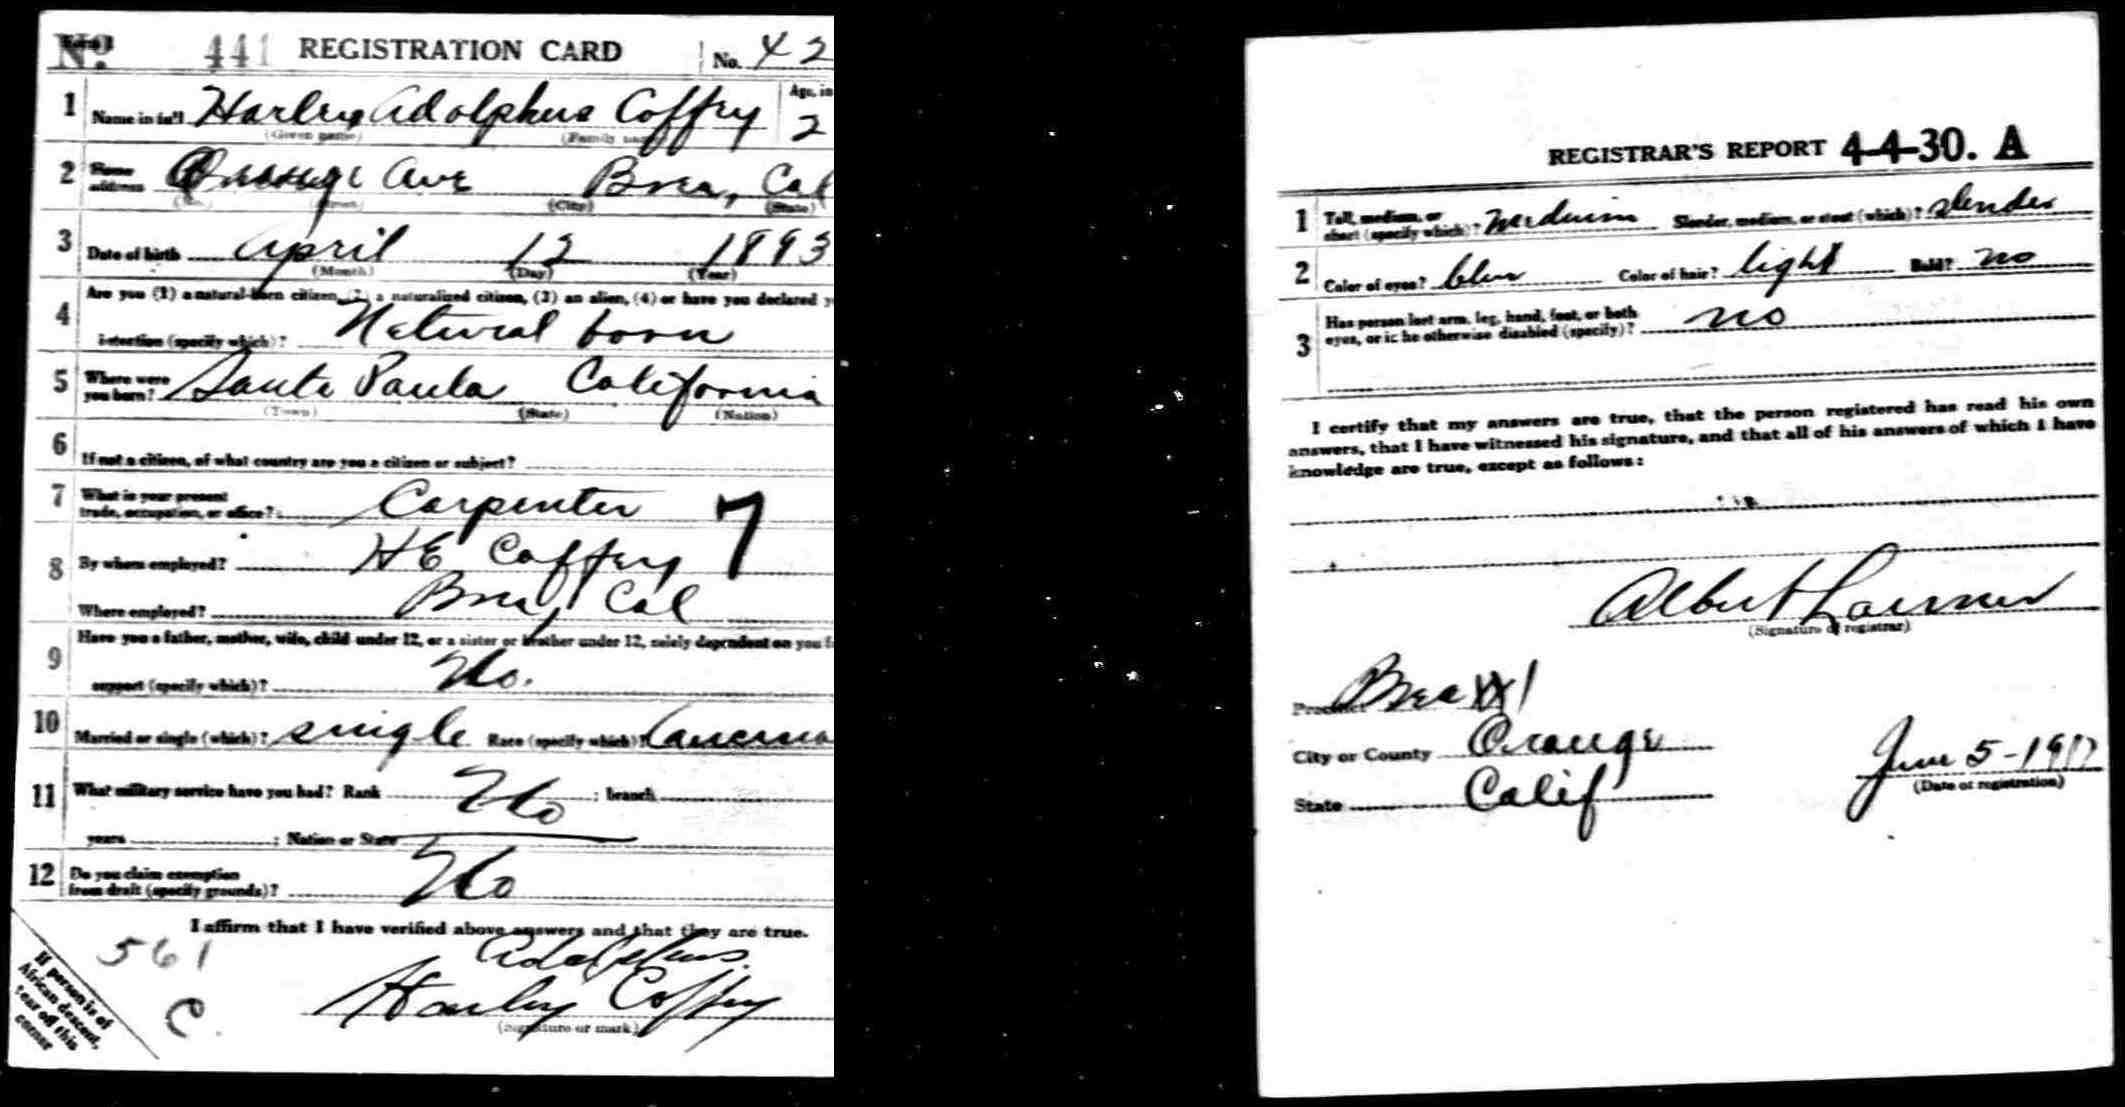 No. 441 REGISTRATION CARD No. 42
1 Name in full Harley Adolphus Coffey Age, in
(Given name) (Family name) 2
2 Home address Orange Ave Brea, Cal
(No.) (Street) (City) (State)
3 Date of birth April 12 1893
(Month) (Day) (Year)
4 Are you (1) a natural-born citizen, (2) a naturalized citizen, (3) an alien, (4) or have you declared
intention (specify which)? Natural born
5 Where were you born? Santa Paula California
(Town) (State) (Nation)
6 If not a citizen, of what country are you a citizen or subject?
7 What is your present
trade, occupation, or office? Carpenter 7
8 By whom employed? HE Coffey
Where employed? Brea, Cal
9 Have you a father, mother, wife, child under 12, or a sister or brother under 12, solely dependent on you
support (specify which)? No.
10 Married or single (which)? single Race (specify which)?
11 What military service have you had? Rank No ; branch
years ; Nation or State
12 Do you claim exemption
from draft (specify grounds)? No
I affirm that I have verified above answers and that they are true.
561
Adolphus.
C. Harley Coffey
(Signature or mark)
If person is of
African descent,
tear off this
corner
REGISTRAR'S REPORT 4-4-30. A
1 Tall, medium, or
short (specify which)? medium Slender, medium, or stout (which)? slender
2 Color of eyes? blue Color of hair? light Bald? no
3 Has person lost arm, leg, hand, foot, or both
eyes, or is he otherwise disabled (specify)? no
I certify that my answers are true, that the person registered has read his own
answers, that I have witnessed his signature, and that all of his answers of which I have
knowledge are true, except as follows:
Albert
(Signature of registrar)
Precinct Brea 1
City or County Orange
State Calif
June 5-1917
(Date of registration)